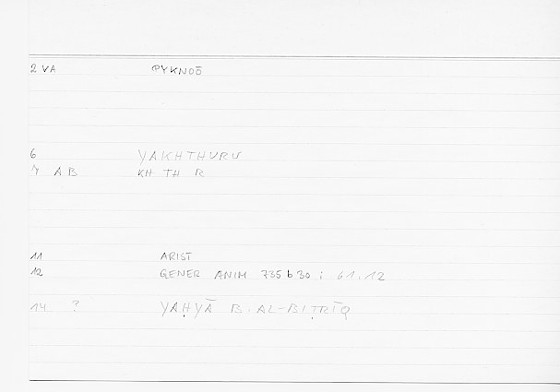 2 VA ΦYKNOŌ
6 YAKHTHURU
7 AB KH TH R
11 ARIST
12 GENER ANIM 735 b 30 ; 61.12
14 ? YAḤYĀ B. AL-BIṬRĪQ